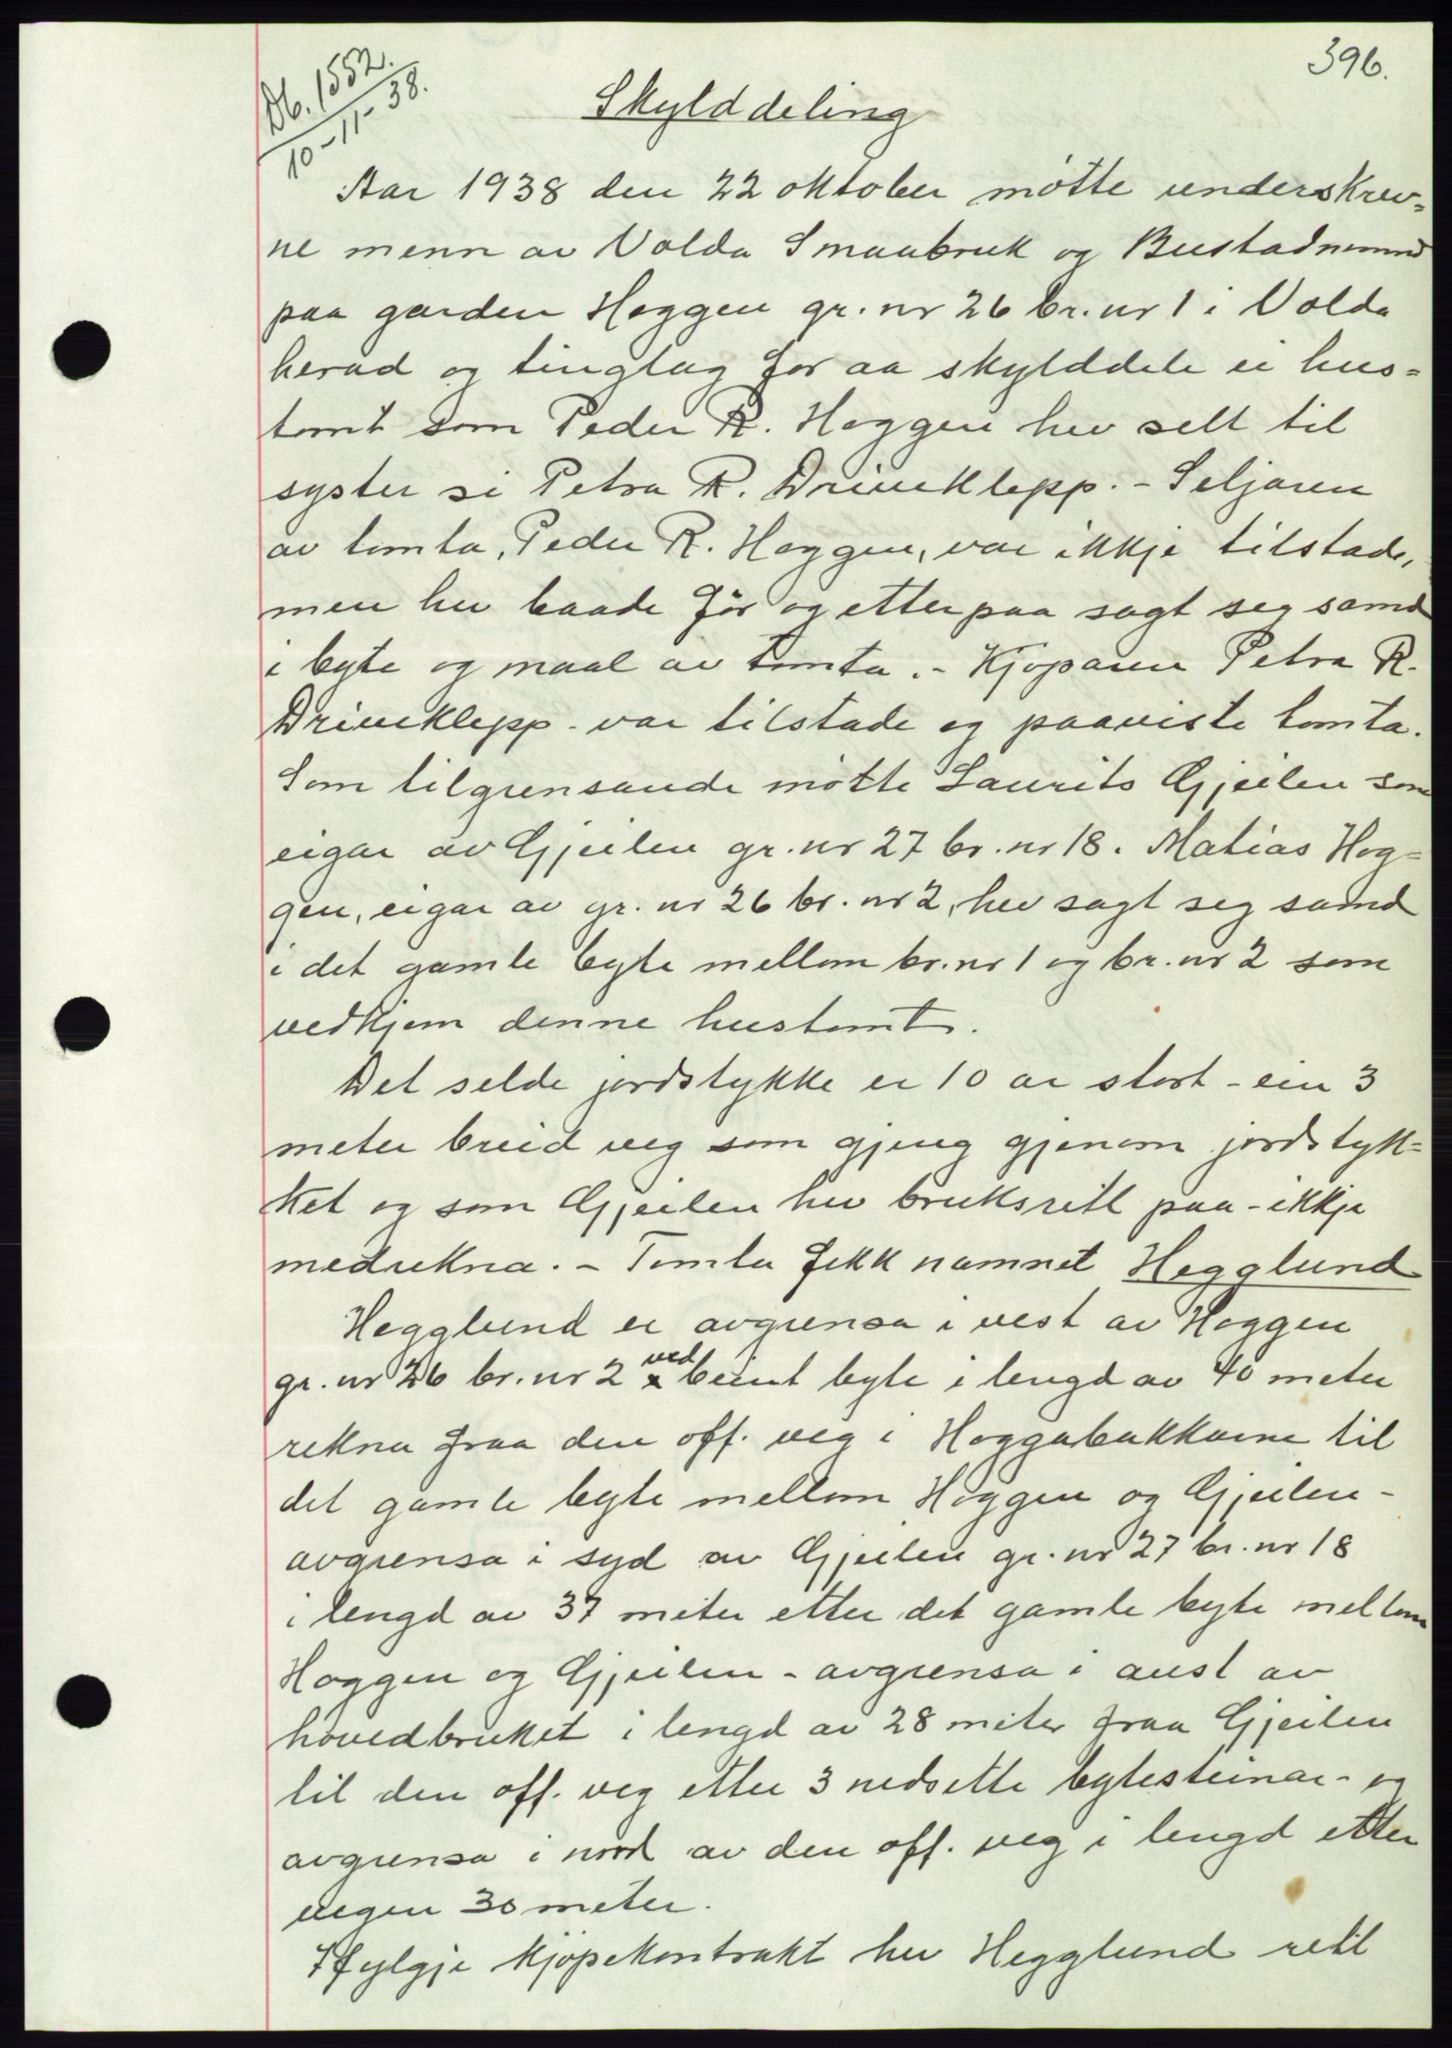 396.
Db. 1552.
10-11-38.
Skylddeling
Aar 1938 den 22 oktober møtte underskrev=
ne menn av Volda Smaabruk og Bustadnemnd
paa garden Heggen gr. nr 26 br. nr 1 i Volda
herad og tinglag for aa skylddele ei hus=
tomt som Peder R. Heggen hev selt til
syster si Petra R. Driveklepp. - Seljaren
av tomta, Peder R. Heggen, var ikkje tilstade,
men hev baade før og etterpaa sagt seg samd
i byte og maal av tomta. - Kjøparen Petra R.
Driveklepp - var tilstade og paaviste tomta.
Som tilgrensande møtte Laurits Gjeilen som
eigar av Gjeilen gr. nr 27 br. nr 18. Matias Heg=
gen, eigar av gr. nr 26 br. nr 2, hev sagt seg samd
i det gamle byte mellom br. nr 1 og br. nr 2 som
vedkjem denne hustomt.
Det selde jordstykke er 10 ar stort - ein 3
meter breid veg som gjeng gjenom jordstyk=
ket og som Gjeilen hev bruksrett paa - ikkje
medrekna. - Tomta fekk namnet Hegglund
Hegglund er avgrensa i vest av Heggen
gr. nr 26 br. nr 2 x ved beint byte i lengd av 40 meter
rekna fraa den off. veg i Heggabakkane til
det gamle byte mellom Heggen og Gjeilen -
avgrensa i syd av Gjeilen gr. nr 27 br. nr 18
i lengd av 37 meter etter det gamle byte mellom
Heggen og Gjeilen - avgrensa i aust av
hovedbruket i lengd av 28 meter fraa Gjeilen
til den off. veg etter 3 nedsette bytesteinar - og
avgrensa i nord av den off. veg i lengd etter
vegen 30 meter.
Ifylgje kjøpekontrakt hev Hegglund rett